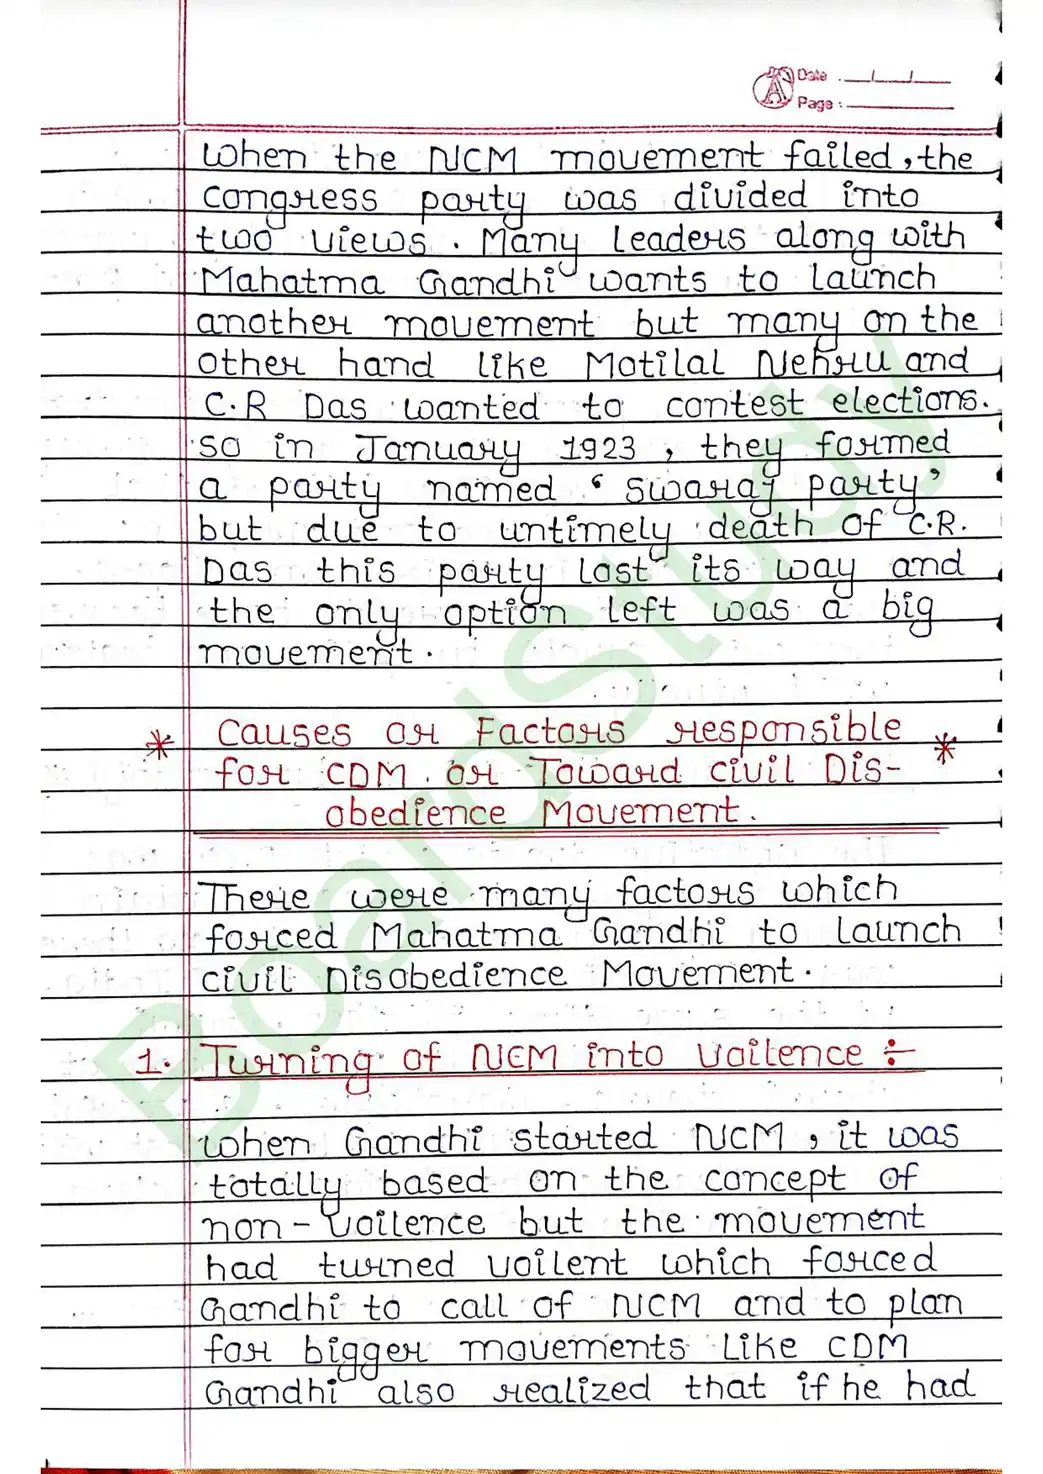 Date : __/__/__
Page :
When the NCM movement failed, the
congress party was divided into
two views. Many leaders along with
Mahatma Gandhi wants to launch
another movement but many on the
other hand like Motilal Nehru and
C.R Das wanted to contest elections.
so in January 1923, they formed
a party named ‘Swaraj party’
but due to untimely death of C.R.
Das this party lost its way and
the only option left was a big
movement.
* Causes or Factors responsible *
for CDM or Toward civil Dis-
obedience Movement.
There were many factors which
forced Mahatma Gandhi to launch
civil Disobedience Movement.
1. Turning of NCM into voilence :-
When Gandhi started NCM, it was
totally based on the concept of
non-voilence but the movement
had turned voilent which forced
Gandhi to call of NCM and to plan
for bigger movements like CDM
Gandhi also realized that if he had
BoardStudy